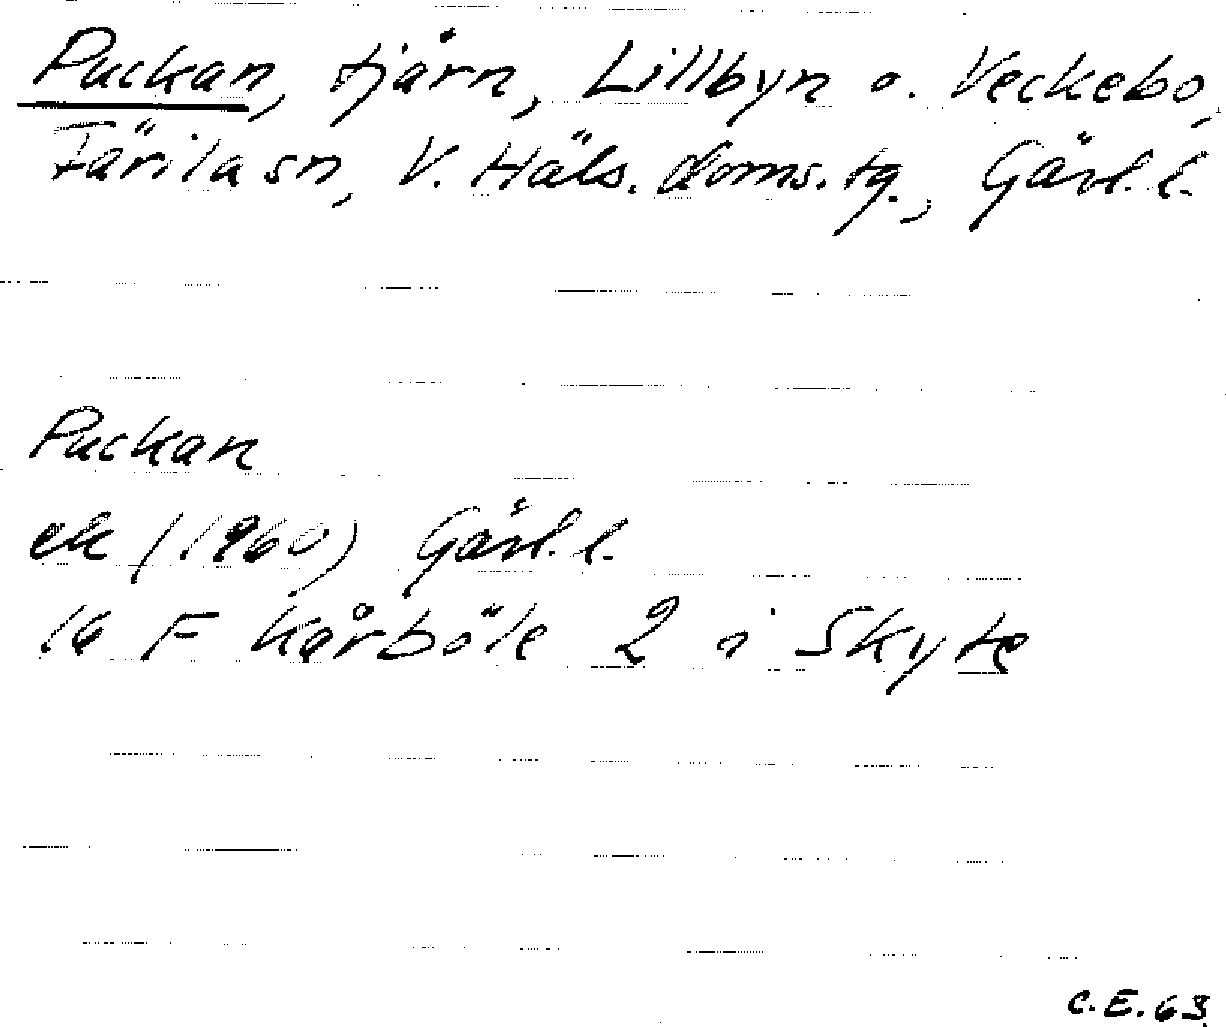 Puckan, tjärn, Lillbyn o. Veckebo,
Färila sn, V. Häls. doms. tg., Gävl. l.
Puckan
ek (1960) Gävl. l.
16 F Kårböle 2 i Skyte
C.E. 63